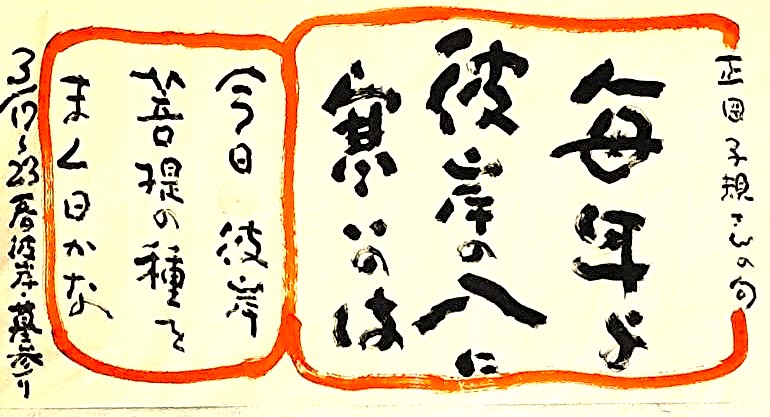 正岡子規さんの句
毎年よ
彼岸の入に
寒いのは
今日彼岸
菩提の種を
まく日かな
3/17〜23春彼岸・墓参り